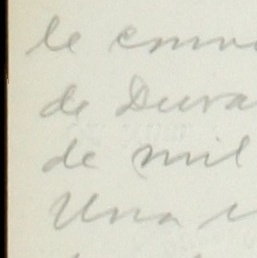 le
de Dura
de mil
Una